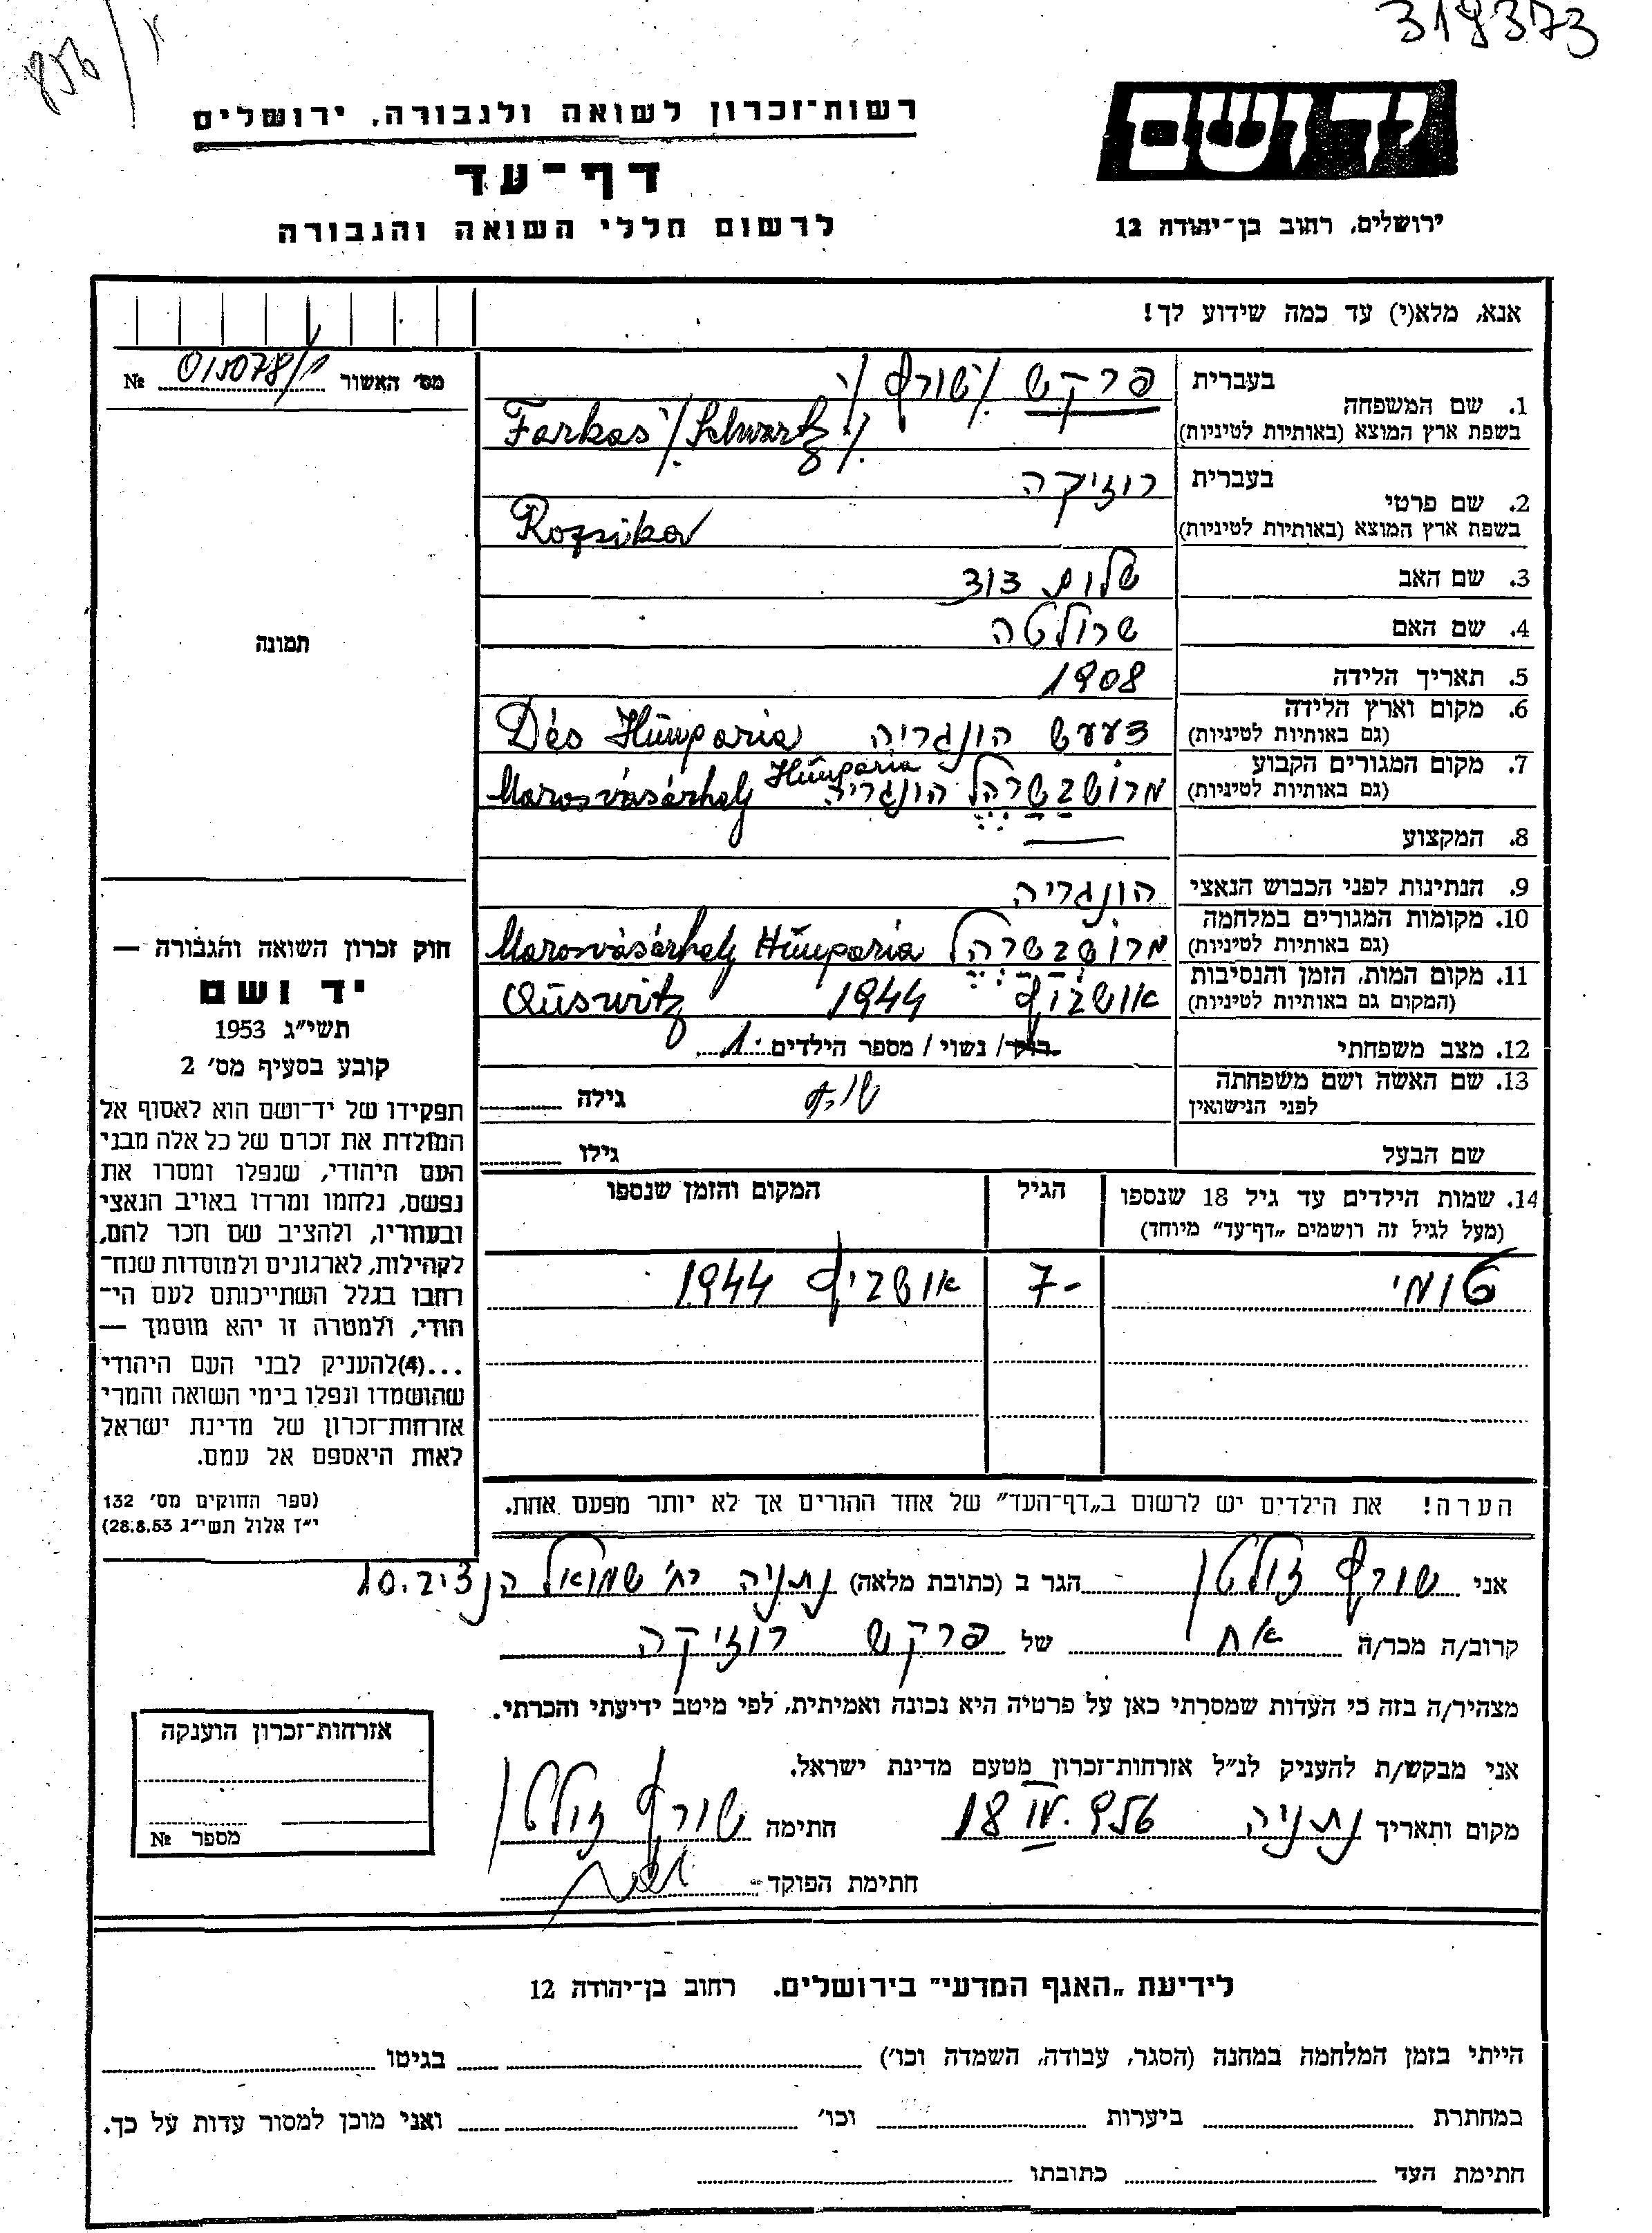 318373
יד ושם
ירושלים, רחוב בן־יהודה 12
רשות־זכרון לשואה ולגבורה, ירושלים
דף־עד
לרשום חללי השואה והגבורה
אנא, מלא(י) עד כמה שידוע לך!
מס׳ האשור № 015078/
1. שם המשפחה בעברית פרקש /שורץ/
בשפת ארץ המוצא (באותיות לטיניות) Farkas /Schwartz/
2. שם פרטי בעברית רוזיקה
בשפת ארץ המוצא (באותיות לטיניות) Rozsika
3. שם האב
4. שם האם שרולטה
5. תאריך הלידה 1908
6. מקום וארץ הלידה (גם באותיות לטיניות) דעעש הונגריה Dés Hungaria
7. מקום המגורים הקבוע (גם באותיות לטיניות) מרושבשרהל הונגריה Marosvásárhely Hungaria
8. המקצוע —
9. הנתינות לפני הכבוש הנאצי הונגריה
10. מקומות המגורים במלחמה (גם באותיות לטיניות) מרושבשרהל Marosvásárhely Hungaria
11. מקום המות, הזמן והנסיבות (המקום גם באותיות לטיניות) אושביץ 1944 Auswitz
12. מצב משפחתי רווק/ נשוי / מספר הילדים 1
13. שם האשה ושם משפחתה לפני הנישואין גילה
שם הבעל גילו
14. שמות הילדים עד גיל 18 שנספו (מעל לגיל זה רושמים „דף־עד” מיוחד) הגיל המקום והזמן שנספו
טומי 7- אושביץ 1944
הערה! את הילדים יש לרשום ב„דף־העד” של אחד ההורים אך לא יותר מפעם אחת.
תמונה
חוק זכרון השואה והגבורה —
יד ושם
תשי״ג 1953
קובע בסעיף מס׳ 2
תפקידו של יד־ושם הוא לאסוף אל
המולדת את זכרם של כל אלה מבני
העם היהודי, שנפלו ומסרו את
נפשם, נלחמו ומרדו באויב הנאצי
ובעוזריו, ולהציב שם וזכר להם,
לקהילות, לארגונים ולמוסדות שנח־
רחבו בגלל השתייכותם לעם הי־
הודי, ולמטרה זו יהא מוסמך —
...(4)להעניק לבני העם היהודי
שהושמדו ונפלו בימי השואה והמרי
אזרחות־זכרון של מדינת ישראל
לאות היאספם אל עמם.
(ספר החוקים מס׳ 132
י״ז אלול תשי״ג 28.8.53)
אני שורץ זולטן הגר ב (כתובת מלאה) נתניה רח׳ שמואל הנציב 10.
קרוב/ה מכר/ה אח של פרקש רוזיקה
מצהיר/ה בזה כי העדות שמסרתי כאן על פרטיה היא נכונה ואמיתית, לפי מיטב ידיעתי והכרתי.
אני מבקש/ת להעניק לנ״ל אזרחות־זכרון מטעם מדינת ישראל.
מקום ותאריך נתניה 18 חתימה שורץ זולטן
חתימת הפוקד
אזרחות־זכרון הוענקה
מספר №
לידיעת „האגף המדעי” בירושלים. רחוב בן־יהודה 12
הייתי בזמן המלחמה במחנה (הסגר, עבודה, השמדה וכו׳) בגיטו
במחתרת ביערות וכו׳ ואני מוכן למסור עדות על כך.
חתימת העד כתובתו